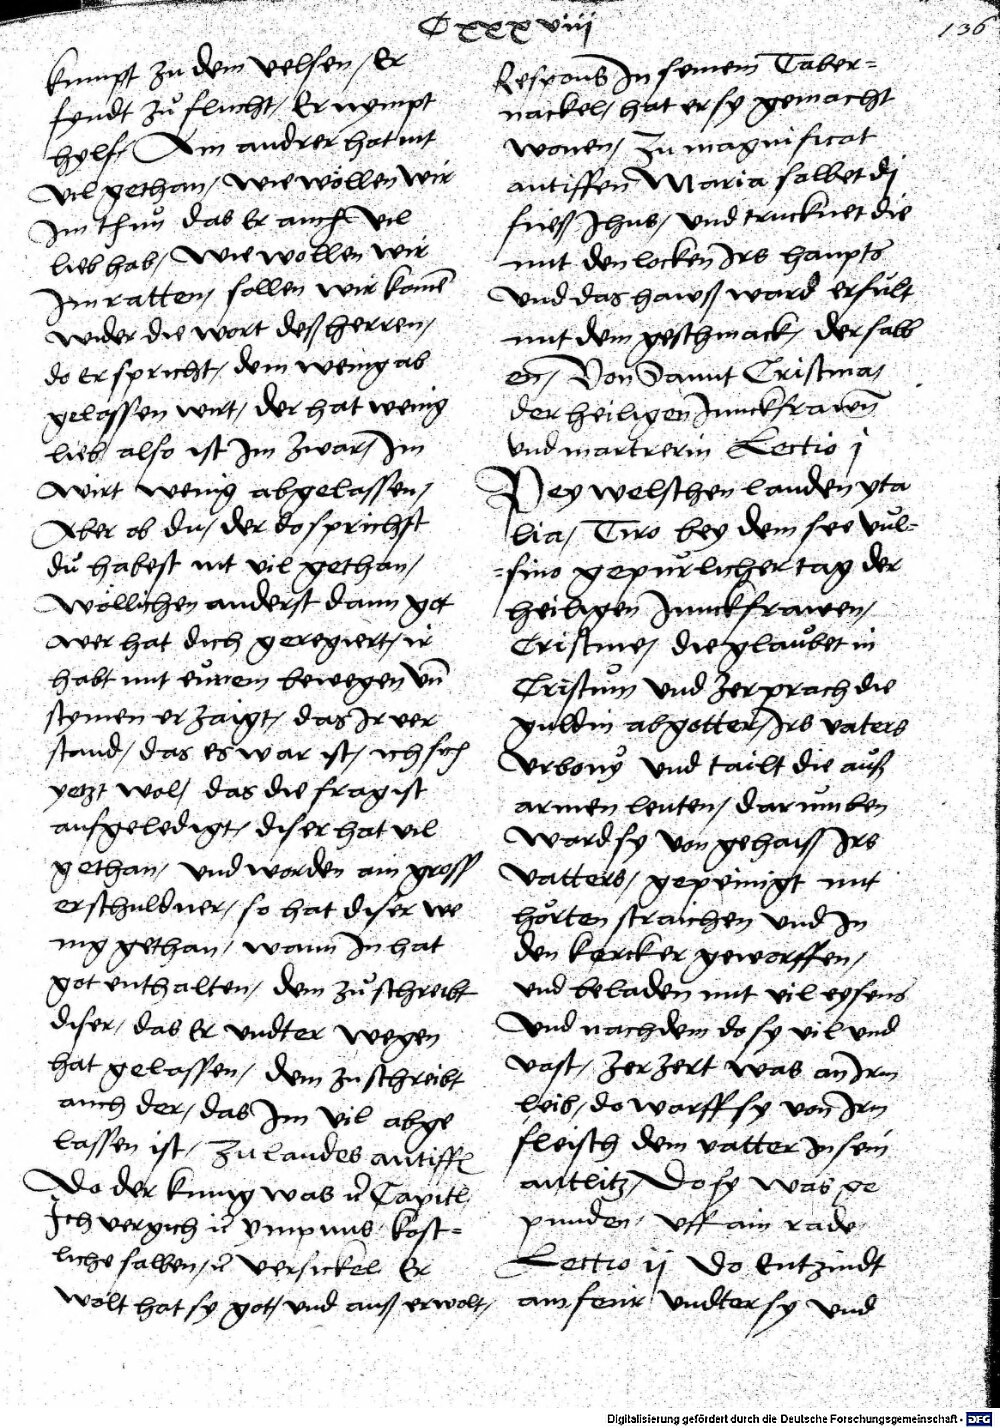 Cxxxviii
136
kumpt zu dem velsen / Er
fyndt zů flucht / Er nympt
hylf / Ain andrer hat nit
vil gethan / wie wöllen wir
Im thun das Er auch vil
lieb hab / wie wollen wir
Im ratten / sollen wir komē
wider die wort deß herren /
do Er spricht / dem wenig ab
gelassen wirt / der hat wenig
lieb also ist Im zwar / Im
wirt wenig abgelassen /
Aber ob du / der do sprichst
dů habest nit vil gethan /
wöllichen anderst dann got
wer hat dich geregiert / ir
habt mit eůrem bewegen vn̄
stymen erzaigt / das Ir ver
stand / das es war ist / ich sich
yetzt wol / das die frag ist
aufgeledigt / diser hat vil
gethan / und worden ain gross
er schuldner / so hat diser we
nig gethan / wann In hat
got enthalten / dem zů schreibt
diser / das Er undter wegen
hat gelassen / dem zu schreibt
auch der / das Im vil abge
lassen ist / Zu landes antiff
Do der kunig was Capitl
Ich vergich ympnus kost=
liche salben / versickel Er
wolt hat sy got / und auß erwolt /
Respons In seinem Taber=
nackel / hat er sy gemacht
wonen / Zu magnificat
antiffen Maria salbet di
fueß Jhus / und trucknet die
mit den locken Irs haupts
und das hawß ward erfult
mit dem geschmack / der salb
en / Von Sannt Cristina /
der heiligen Junckfrawen
und martrerin Lectio j
Bey welschen landen yta
lia / Tiro bey dem see vul=
=sino gepurlicher tag der
heiligen Junckfrawen /
Cristine / die glaubet in
Cristum und zerprach die
guldin abgotter / Irs vaters
Urbony und tailt die auß
armen leuten / darumben
ward sy von gehaiß Irs
vatters / gepeinigt mit
hörten straichen und In
den kercker geworffen /
und beladen mit vil eysens
und nachdem do sy vil und
vast / zerzert was an Irm
leib / do warff sy von Irm
fleisch dem vatter In sein
antlitz / Do sy was ge
punden / uff ain rade
Lectio ij Do Entzindt
ain feur undter sy und
Digitalisierung gefördert durch die Deutsche Forschungsgemeinschaft - DFG